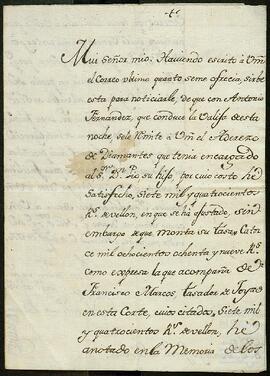 +
Mui Señor mio. Haviendo escrito à Vm
el Correo ultimo quanto seme ofrecia, sirbe
esta para noticiarle, de que con Antonio
Fernandez, que conduce la Valija de esta
noche, sele remite à Vm el Aderezo
de Diamantes que tenia encargado
al Sr. Dn. Pio su hijo, por cuio costo he
Satisfecho, Siete mil y quatrocientos
Rs. de vellon, en que se hà ajustado, sin
embargo de que monta su tasaz. Cator
ce mil ochocientos ochenta y nueve Rs.
como expresa la que acompaña de Dn.
Francisco Marcos, tasador de Joyas
en esta Corte, cuios citados, Siete mil
y quatrocientos Rs. de vellon, hè
anotado en la Memoria de los